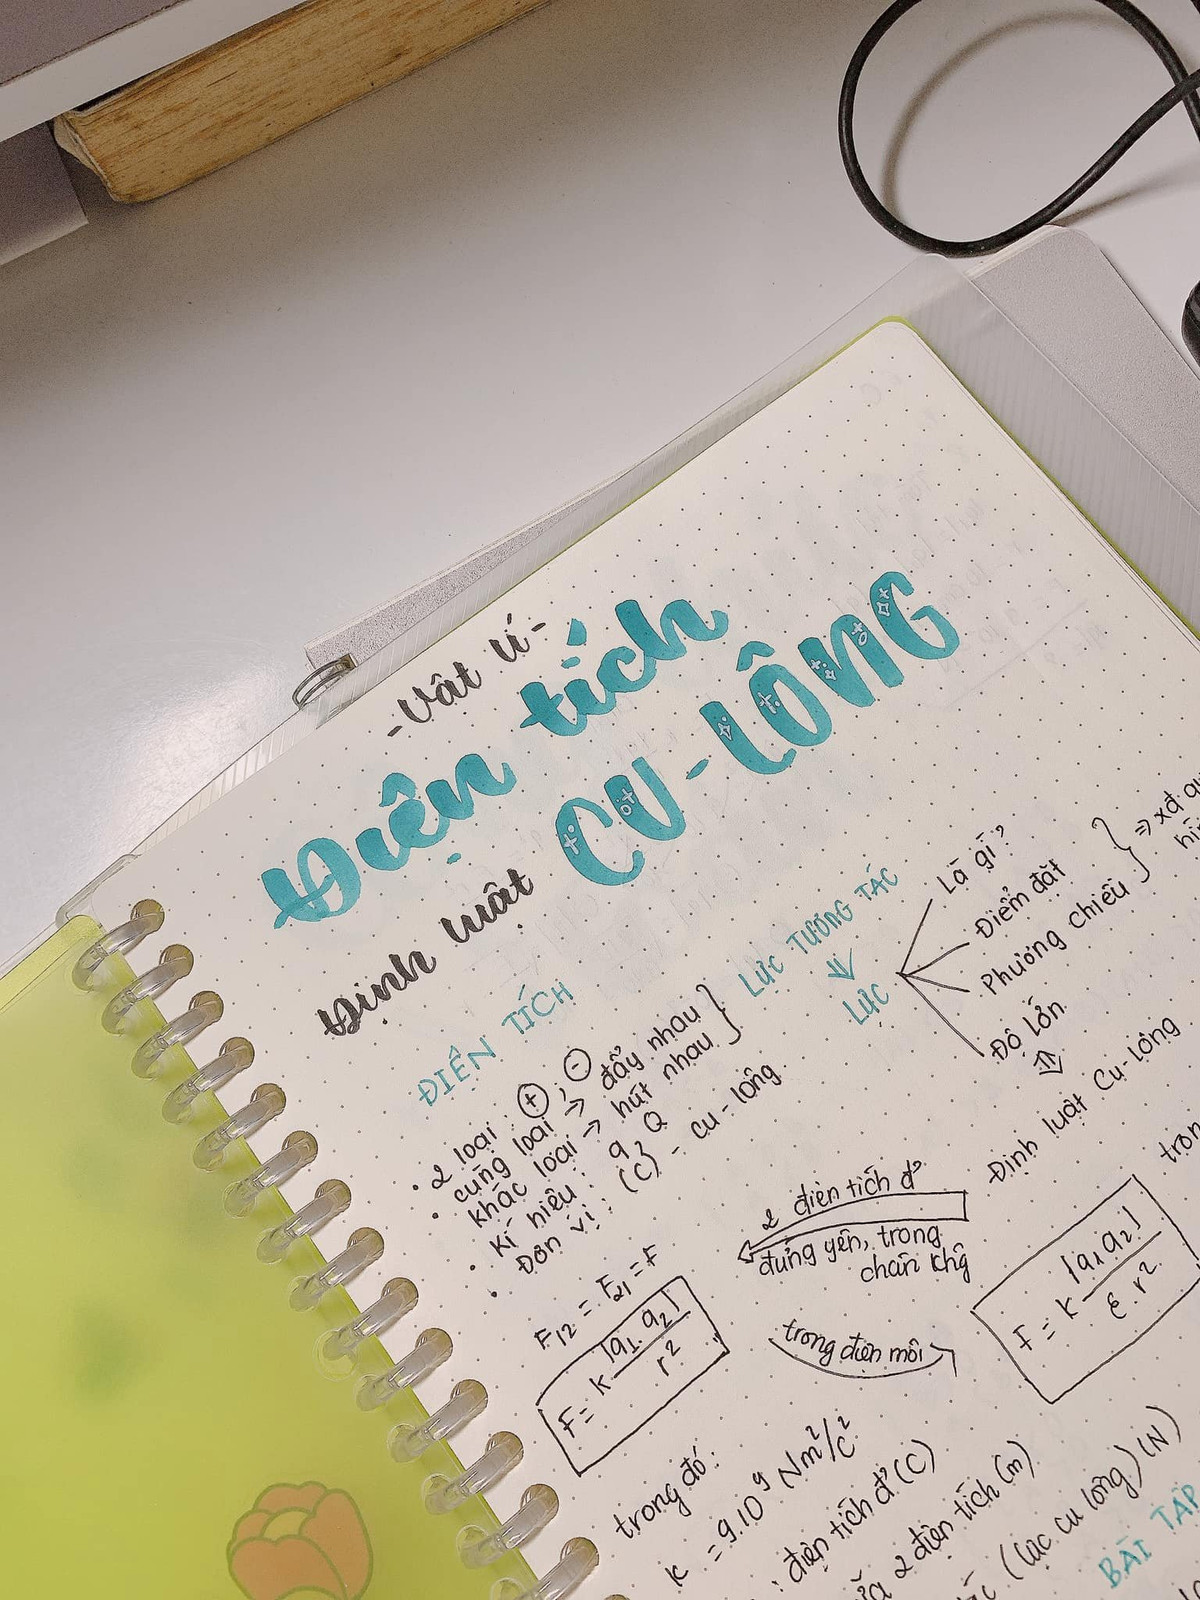 - Vật lí -
Điện tích
Định luật CU-LÔNG
ĐIỆN TÍCH
• 2 loại : + ; -
• cùng loại → đẩy nhau
khác loại → hút nhau
• kí hiệu : q Q
• Đơn vị : (C) - cu-lông.
LỰC TƯƠNG TÁC
⇓
LỰC
Là gì?
Điểm đặt
Phương chiều
Độ lớn
⇒ xđ
⇑
Định luật Cu-lông
2 điện tích đ'
đứng yên, trong
chân khg
F₁₂ = F₂₁ = F
F = k |q₁.q₂| / r²
trong điện môi
F = k |q₁q₂| / ε.r²
trong đó:
k = 9.10⁹ Nm²/C²
: điện tích đ' (C)
2 điện tích (m)
(lực cu lông) (N)
BÀI TẬP